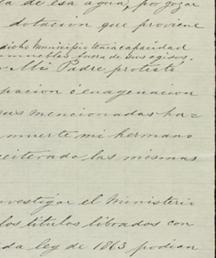 de esa agua, por gozar
dotacion que proviene
dicho Municipio tenia capacidad
inmuebles fuera de sus egidos.
mi Padre protestó
pacion i enagenacion
mencionadas ha=
muerte, mi hermano
reiterado las mismas
vestigar el Ministerio
los titulos librados con
da ley de 1863 podian